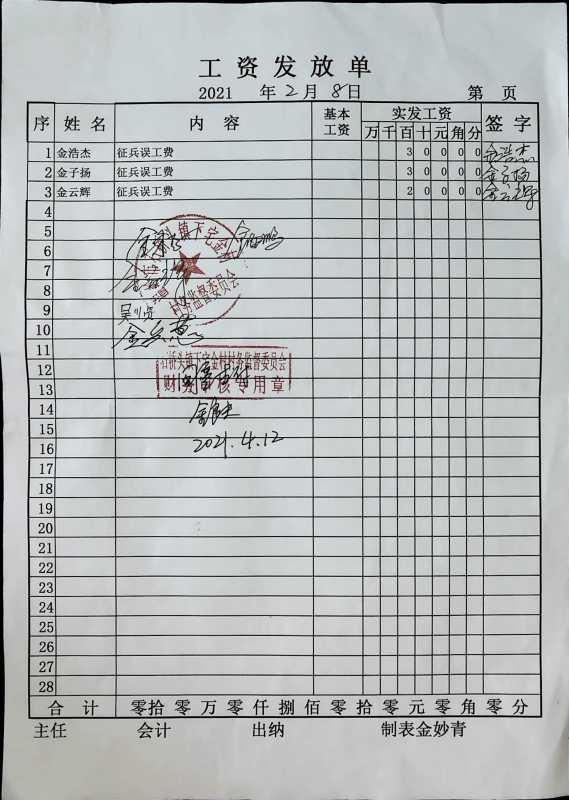 工资发放单
2021 年 2 月 8 日 第 页
序 姓名 内容 基本工资 实发工资 签字
万 千 百 十 元 角 分
1 金浩杰 征兵误工费 3 0 0 0 0 金浩杰
2 金子扬 征兵误工费 3 0 0 0 0 金子扬
3 金云辉 征兵误工费 2 0 0 0 0 金云辉
4
5
6
7
8
9
10
11
12
13
14
15
16
17
18
19
20
21
22
23
24
25
26
27
28
村务监督委员会
石桥头镇下宅金村村务监督委员会
财务审核专用章
2021.4.12
合计 零拾零万零仟捌佰零拾零元零角零分
主任 会计 出纳 制表金妙青